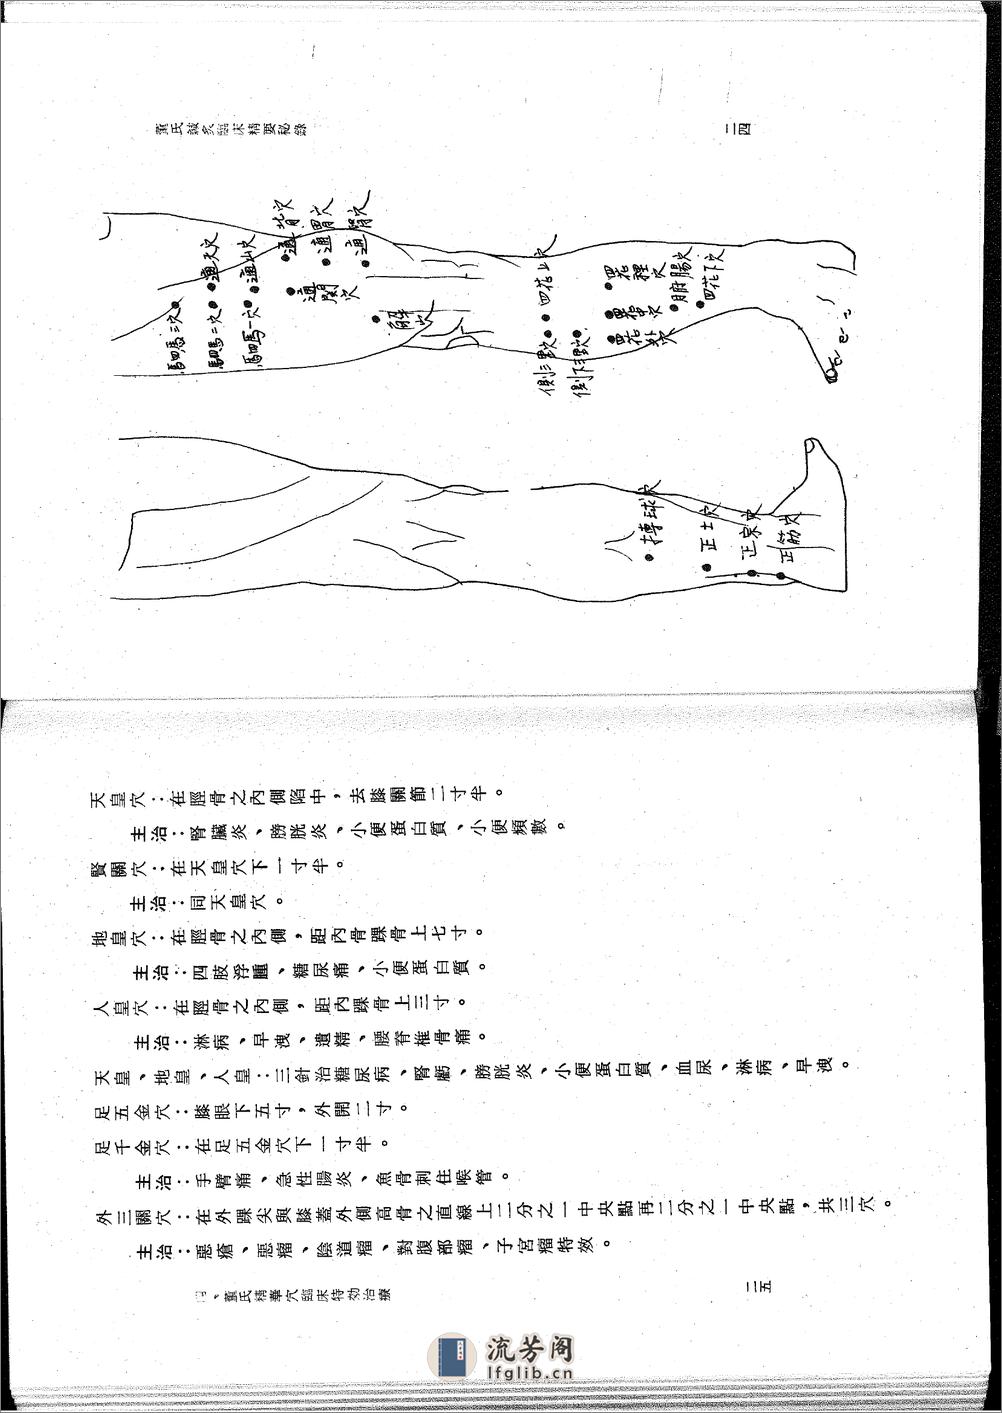 董氏鍼灸臨床精要秘錄
二四
通背穴
通胃穴
通腎穴
通天穴
通山穴
通關穴
駟馬三穴
駟馬二穴
駟馬一穴
解穴
四花上穴
側三里穴
側下三里穴
四花裡穴
四花中穴
四花外穴
腑腸穴
四花下穴
搏球穴
正士穴
正宗穴
正筋穴
天皇穴：在脛骨之內側陷中，去膝關節二寸半。
主治：腎臟炎、膀胱炎、小便蛋白質、小便頻數。
腎關穴：在天皇穴下一寸半。
主治：同天皇穴。
地皇穴：在脛骨之內側，距內骨踝骨上七寸。
主治：四肢浮腫、糖尿病、小便蛋白質。
人皇穴：在脛骨之內側，距內踝骨上三寸。
主治：淋病、早洩、遺精、腰脊椎骨痛。
天皇、地皇、人皇：三針治糖尿病、腎虧、膀胱炎、小便蛋白質、血尿、淋病、早洩。
足五金穴：膝眼下五寸，外開二寸。
足千金穴：在足五金穴下一寸半。
主治：手臂痛、急性腸炎、魚骨刺住喉管。
外三關穴：在外踝尖與膝蓋外側高骨之直線上二分之一中央點再二分之一中央點，共三穴。
主治：惡瘡、惡瘤、陰道瘤、對腹部瘤、子宮瘤特效。
、董氏精華穴臨床特効治療
二五
流芳阁
lfglib.cn